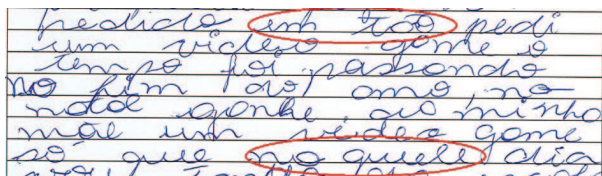 pedido em tão pedi
um video game o
tempo foi passando
no fim do ano, no
natal ganhei, da minha
mãe um video game
só que na quele dia